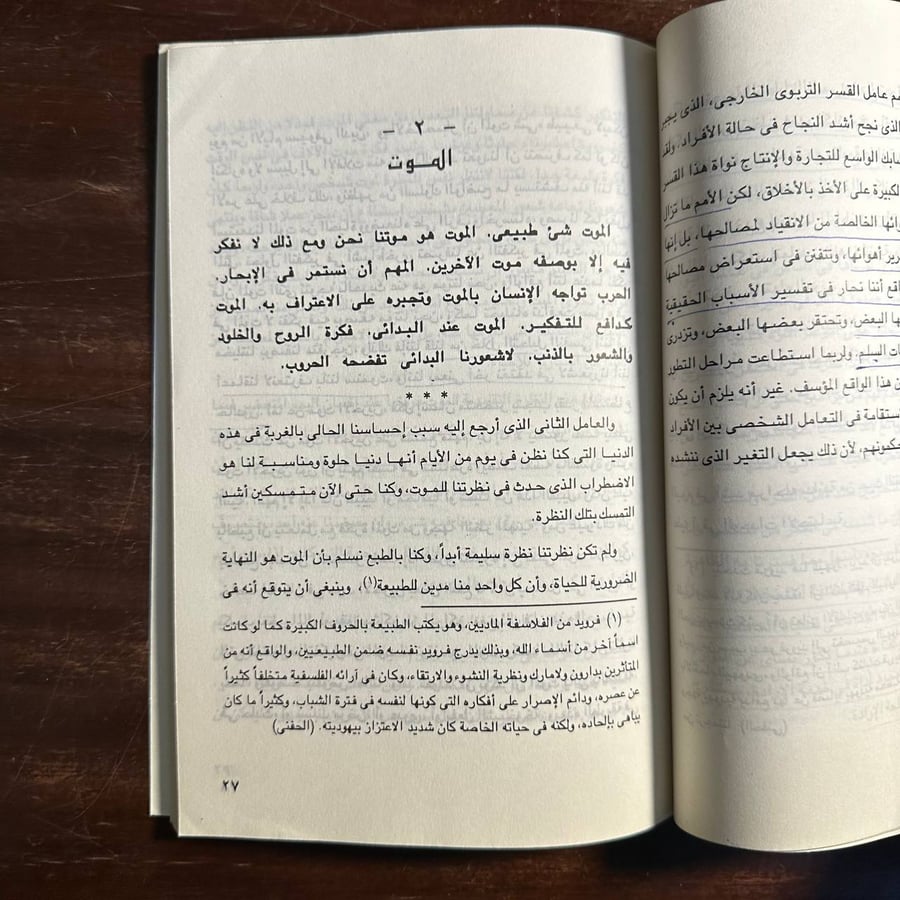 هم عامل القسر التربوى الخارجى، الذى يجبر
الذى نجح أشد النجاح فى حالة الأفراد. ولقد
الواسع للتجارة والإنتاج نواة هذا القسر
الكبيرة على الأخذ بالأخلاق، لكن الأمم ما تزال
الخالصة من الانقياد لمصالحها، بل إنها
أهوائها، وتتفنن فى استعراض مصالحها
أننا نحار فى تفسير الأسباب الحقيقية
البعض، وتحتقر بعضها البعض، وتزدرى
السلم. ولربما استطاعت مراحل التطور
هذا الواقع المؤسف. غير أنه يلزم أن يكون
فى التعامل الشخصى بين الأفراد
لأن ذلك يجعل التغير الذى ننشده
- ٢ -
الموت
الموت شئ طبيعى. الموت هو موتنا نحن ومع ذلك لا نفكر
فيه إلا بوصفه موت الآخرين. المهم أن نستمر فى الإبحار.
الحرب تواجه الإنسان بالموت وتجبره على الاعتراف به. الموت
كدافع للتفكير. الموت عند البدائى. فكرة الروح والخلود
والشعور بالذنب. لاشعورنا البدائى تفضحه الحروب.
* * *
والعامل الثانى الذى أرجع إليه سبب إحساسنا الحالى بالغربة فى هذه
الدنيا التى كنا نظن فى يوم من الأيام أنها دنيا حلوة ومناسبة لنا هو
الاضطراب الذى حدث فى نظرتنا للموت، وكنا حتى الآن متمسكين أشد
التمسك بتلك النظرة.
ولم تكن نظرتنا نظرة سليمة أبداً، وكنا بالطبع نسلم بأن الموت هو النهاية
الضرورية للحياة، وأن كل واحد منا مدين للطبيعة(١)، وينبغى أن يتوقع أنه فى
(١) فرويد من الفلاسفة الماديين، وهو يكتب الطبيعة بالحروف الكبيرة كما لو كانت
اسماً آخر من أسماء الله، وبذلك يدرج فرويد نفسه ضمن الطبيعيين، والواقع أنه من
المتأثرين بدارون ولامارك ونظرية النشوء والارتقاء، وكان فى آرائه الفلسفية متخلفاً كثيراً
عن عصره، ودائم الإصرار على أفكاره التى كونها لنفسه فى فترة الشباب، وكثيراً ما كان
يباهى بإلحاده، ولكنه فى حياته الخاصة كان شديد الاعتزاز بيهوديته. (الحفنى)
٢٧